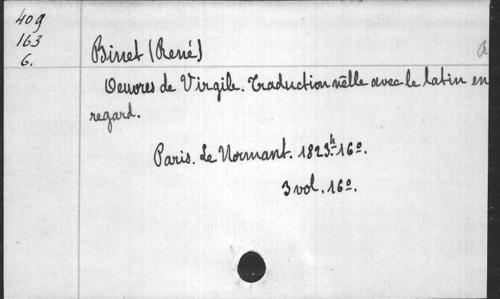 409
163
6.
Binet (René)
Oeuvres de Virgile. Traduction nelle avec le latin en
regard.
Paris. Le Normant. 1823. 16º.
3 vol. 16º.